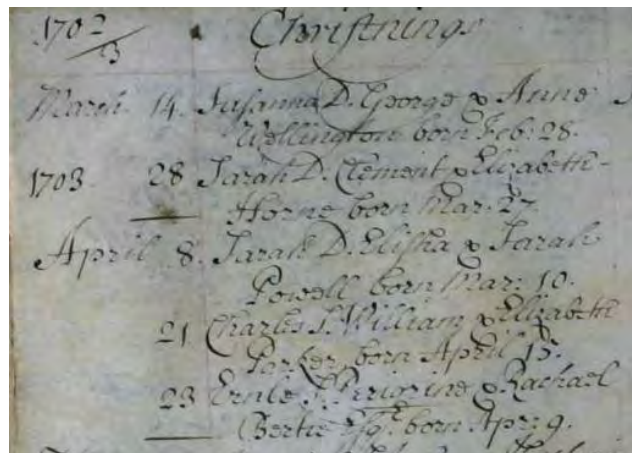 1702/3 Christnings
March 14. Susanna D. George & Anne
Wellington born Feb: 28.
1703 28 Sarah D. Clement & Elizabeth
Horne born Mar: 27
April 8. Sarah D. Elisha & Sarah
Powell born Mar: 10.
21 Charles S. William & Elizabeth
Parker born April 15.
23 Ernle S. Perigrine & Rachael
Bertie Esqr. born Apr: 9.